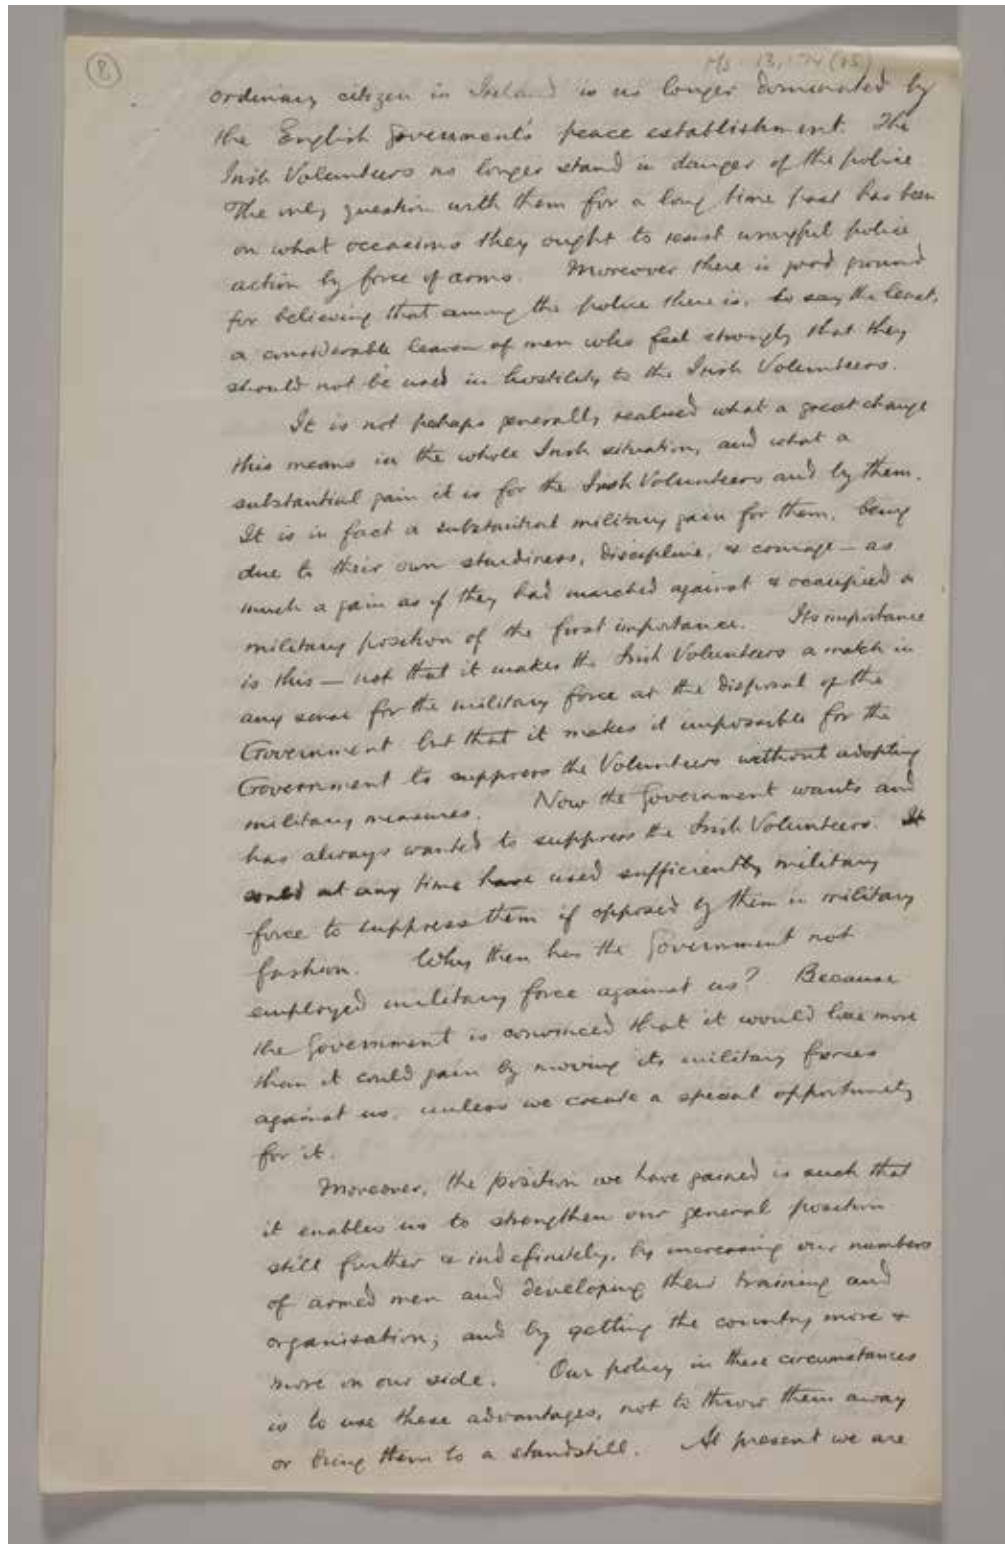 8
Ms 13,174 (15)
ordinary citizen in Ireland is no longer dominated by
the English Government's peace establishment. The
Irish Volunteers no longer stand in danger of the police
The only question with them for a long time past has been
on what occasions they ought to resist wrongful police
action by force of arms. Moreover there is good ground
for believing that among the police there is, to say the least,
a considerable leaven of men who feel strongly that they
should not be used in hostility to the Irish Volunteers.
It is not perhaps generally realised what a great change
this means in the whole Irish situation, and what a
substantial gain it is for the Irish Volunteers and by them.
It is in fact a substantial military gain for them, being
due to their own sturdiness, discipline, & courage — as
much a gain as if they had marched against & occupied a
military position of the first importance. Its importance
is this — not that it makes the Irish Volunteers a match in
any sense for the military force at the disposal of the
Government but that it makes it impossible for the
Government to suppress the Volunteers without adopting
military measures. Now the Government wants and
has always wanted to suppress the Irish Volunteers. It
could at any time have used sufficiently military
force to suppress them if opposed by them in military
fashion. Why then has the Government not
employed military force against us? Because
the Government is convinced that it would lose more
than it could gain by moving its military forces
against us, unless we create a special opportunity
for it.
Moreover, the position we have gained is such that
it enables us to strengthen our general position
still further & indefinitely, by increasing our numbers
of armed men and developing their training and
organisation; and by getting the country more &
more on our side. Our policy in these circumstances
is to use these advantages, not to throw them away
or bring them to a standstill. At present we are